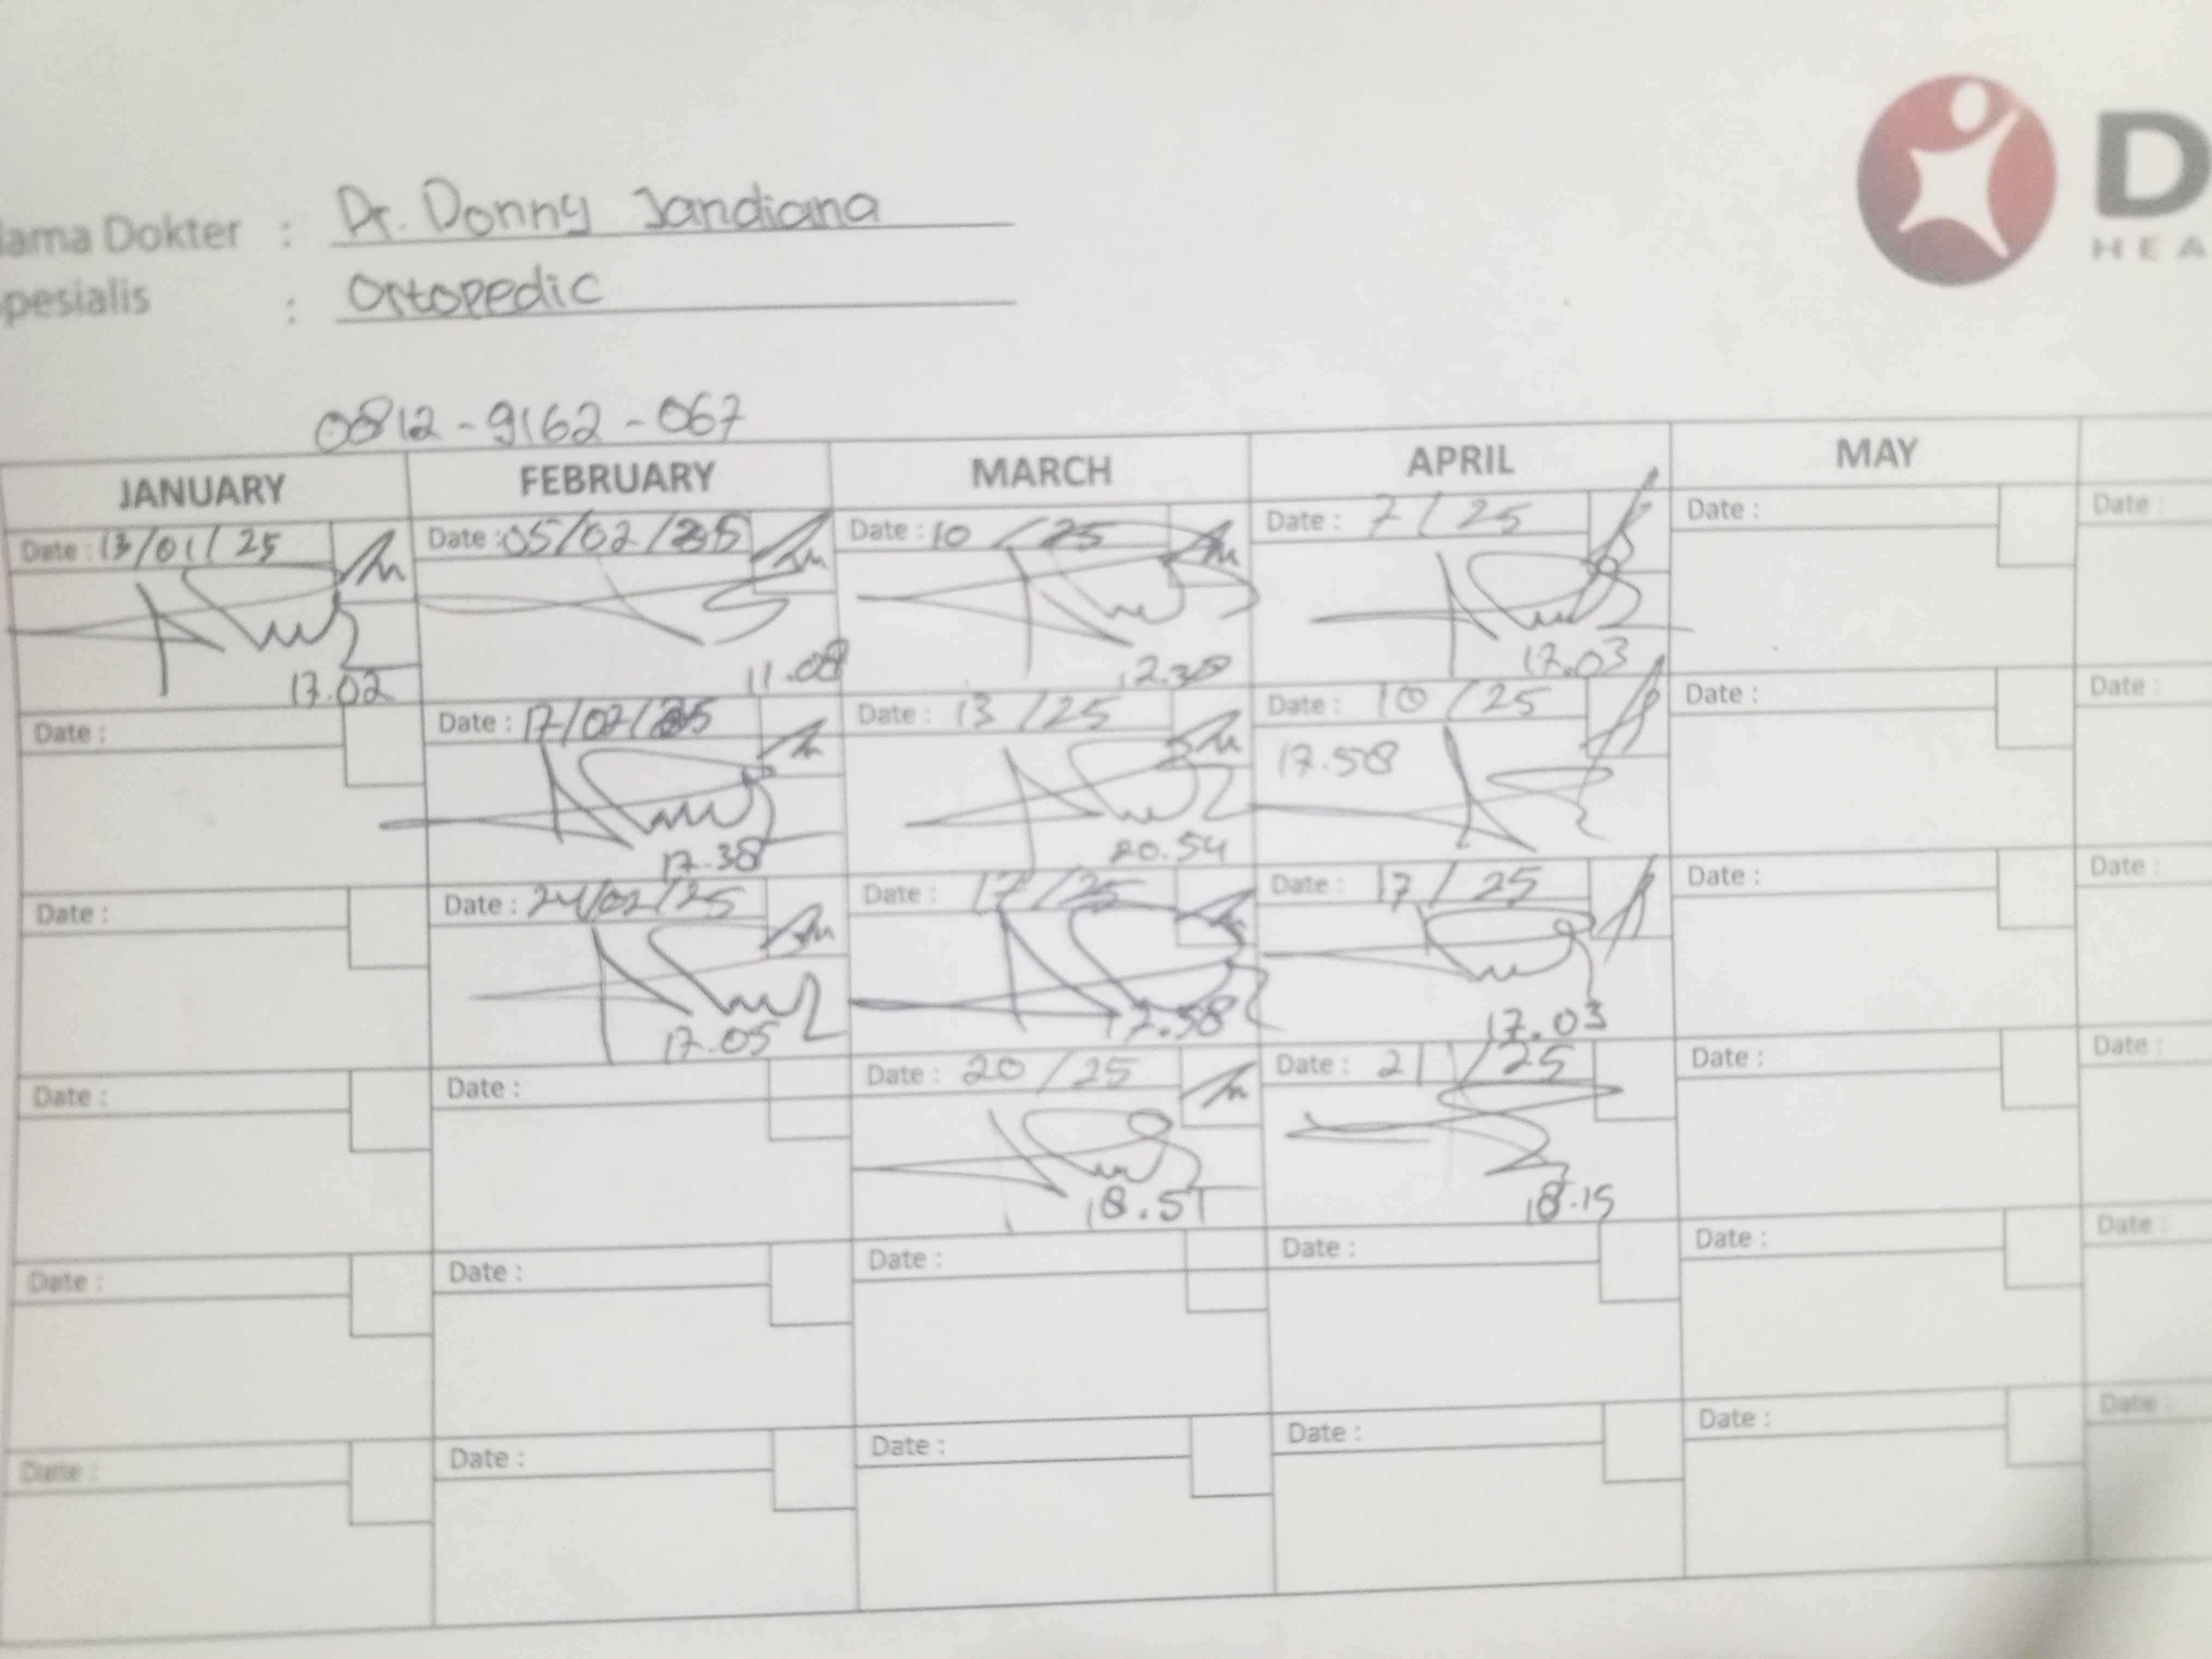 D
HEA
ama Dokter : Dr. Donny Jandiana
pesialis : Ortopedic
0812-9162-067
JANUARY FEBRUARY MARCH APRIL MAY
Date : 13/01/25 Date : 05/02/25 Date : 10 /25 Date : 7 / 25 Date : Date :
17.02 11.08 12.38 17.03
Date : Date : 17/02/25 Date : 13 /25 Date : 10 /25 Date : Date :
17.58
17.38 20.54
Date : Date : 24/02/25 Date : 17/25 Date : 17 / 25 Date : Date :
17.05 17.58 17.03
Date : Date : Date : 20 /25 Date : 21 /25 Date : Date :
18.51 18.15
Date : Date : Date : Date : Date : Date :
Date : Date : Date : Date : Date : Date :